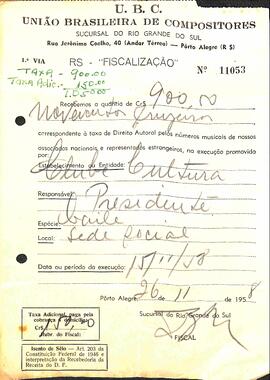 U. B. C.
UNIÃO BRASILEIRA DE COMPOSITORES
SUCURSAL DO RIO GRANDE DO SUL
Rua Jerônimo Coelho, 40 (Andar Térreo) — Pôrto Alegre (R S)
1.ª VIA RS - "FISCALIZAÇÃO" Nº 11053
TAXA - 900.00
TAXA Adic. - 150.00
Recebemos a quantia de Cr$ 900,00
Novecentos Cruzeiros
correspondente à taxa de Direito Autoral pelos números musicais de nosso
associados e representados estrangeiros, na execução promovida
Estabelecimento ou Entidade: Clube Cultura
Responsável: O Presidente
Espécie: baile
Local: sede social
Data ou período da execução: 15/11/58
Pôrto Alegre, 26 - 11 de 1958
Sucursal do Rio Grande do Sul
FISCAL
Taxa Adicional paga pela
cobrança a domicílio
Cr$ 150,00
Rubr. do Fiscal:
Isento de Sêlo — Art. 203 da
Constituição Federal de 1946 e
interpretação da Recebedoria da
Receita do D. F.